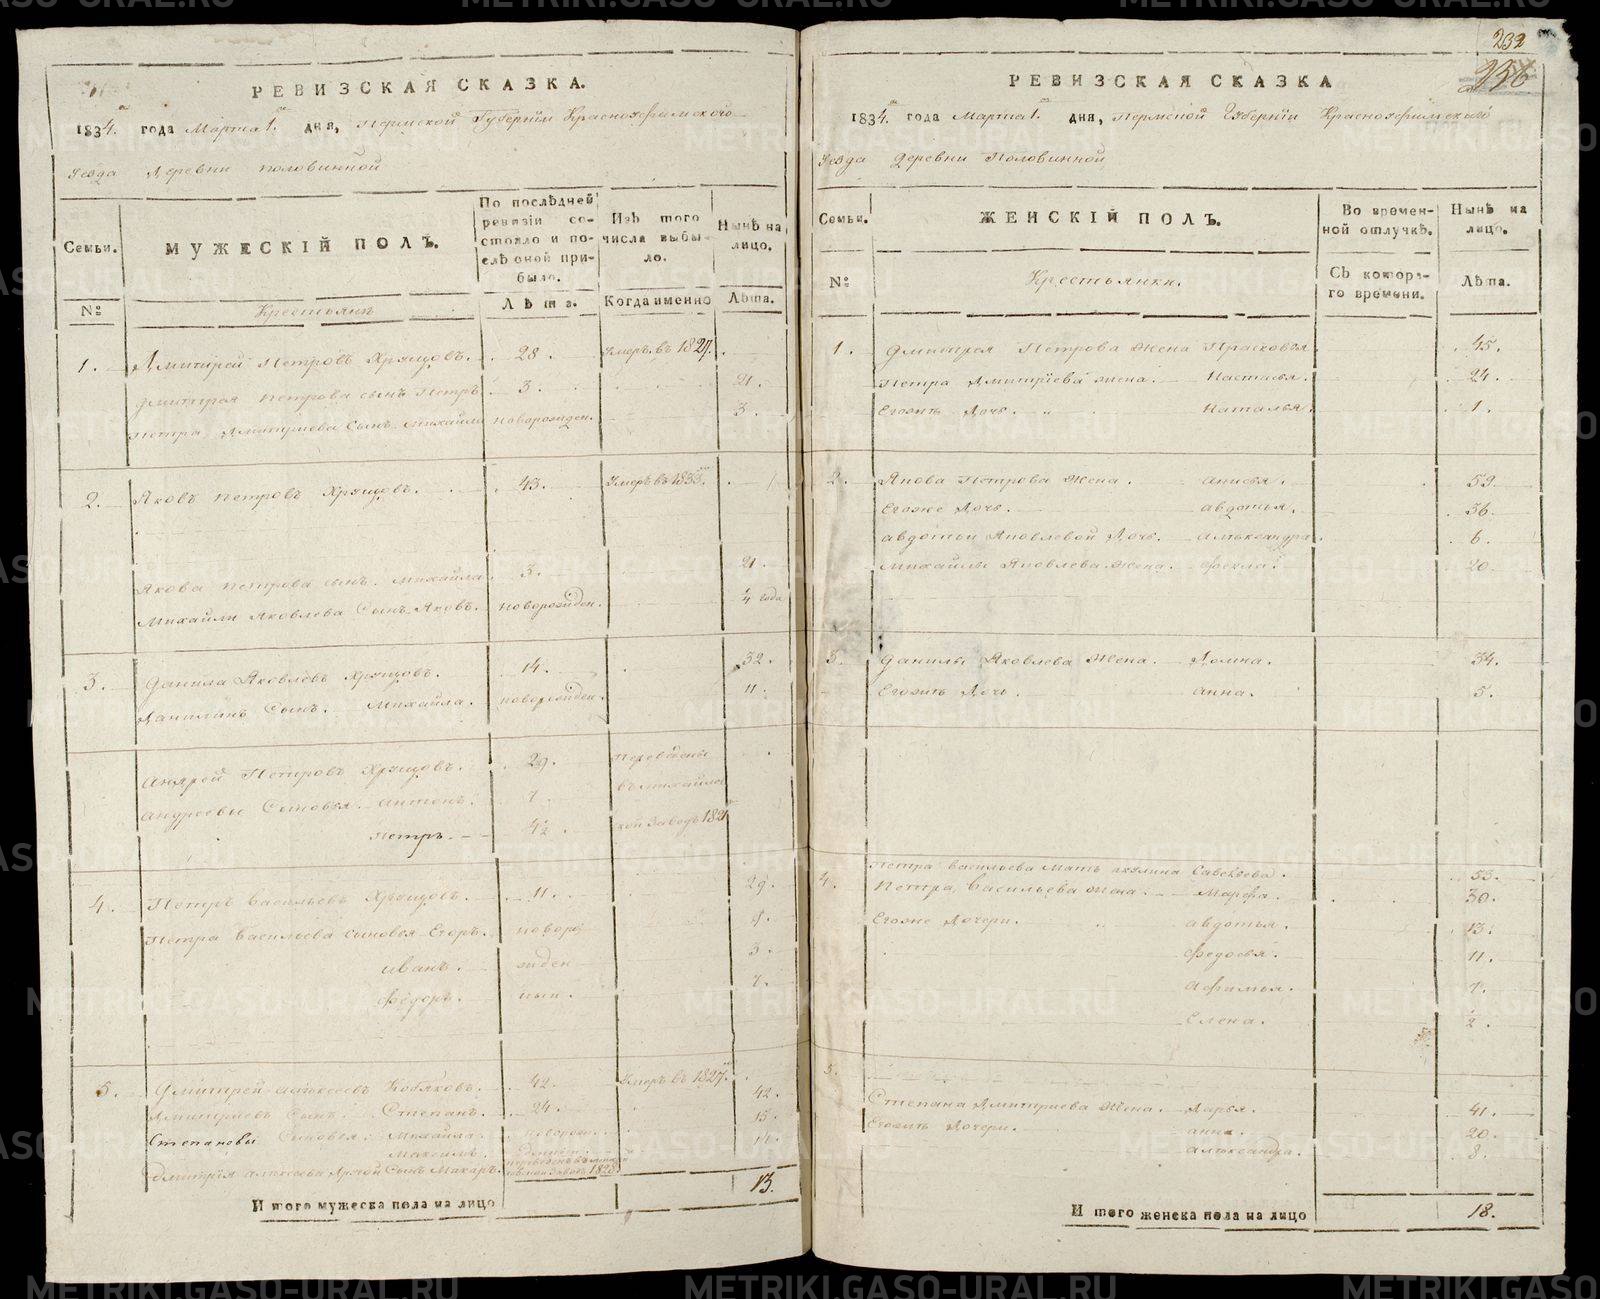 РЕВИЗСКАЯ СКАЗКА.
1834. года Марта 1. дня, Пермской Губернiи Красноуфимского
Уезда Деревни Половинной
Семьи.
МУЖЕСКIЙ ПОЛЪ.
По послѣдней ревизiи состояло и послѣ оной прибыло.
Изъ того числа выбыло.
Нынѣ на лицо.
№
Крестьянъ
Лѣта.
Когда именно
Лѣта.
1. Дмитрей Петровъ Хрущовъ. 28. Умеръ въ 1827.
Дмитрея Петрова сынъ Петръ 3. 21.
Петра Дмитриева Сынъ Михайла новорожден. 3.
2. Яковъ Петровъ Хрущовъ. 43. Умеръ въ 1833.
Якова Петрова сынъ Михайла. 3. 21.
Михайлы Яковлева Сынъ Яковъ. новорожден. 1/4 года
3. Данила Яковлевъ Хрущовъ. 14. 32.
Данилинъ Сынъ. Михайла. новорожден. 11.
Андрей Петровъ Хрущовъ. 29. Переведены
Андреевы Сыновья Антонъ. 7. въ Михайлов
Петръ. 4 1/2. кой Заводъ 1821
4. Петръ Васильевъ Хрущовъ. 11. 29.
Петра Васильева сыновья Егоръ. новорож 9.
Иванъ. ден 3.
Федоръ. ныи. 1.
5. Дмитрей Алексеевъ Кобяковъ. 42. Умеръ въ 1827.
Дмитриевъ Сынъ. Степанъ. 24. 42.
Степановы Сыновья. Михайла. новорож. 15.
Максимъ. денныи. 11.
Дмитрiя Алексеева другой Сынъ Макаръ. 1828.
Итого мужеска пола на лицо 13.
232
РЕВИЗСКАЯ СКАЗКА
1834. года Марта 1. дня, Пермской Губернiи Красноуфимскаго
Уезда Деревни Половинной
Семьи.
ЖЕНСКIЙ ПОЛЪ.
Во временной отлучкѣ.
Нынѣ на лицо.
№
Крестьянки.
Съ котораго времени.
Лѣта.
1. Дмитрея Петрова жена Прасковья. 45.
Петра Дмитрiева жена. Настасья. 24.
Егожъ Дочь. Наталья. 1.
2. Якова Петрова Жена. Анисья. 59.
Егоже Дочь. Авдотья. 36.
Авдотьи Яковлевой Дочь. Александра. 6.
Михайлы Яковлева Жена. Фекла. 20.
3. Данилы Яковлева Жена. Домна. 34.
Егожъ Дочь. Анна. 5.
Петра Васильева Мать Акулина Савельева. 53.
4. Петра Васильева жена. Марфа. 30.
Егоже Дочери. Авдотья. 13.
Федосья. 11.
Афимья. 7.
Елена. 2.
5.
Степана Дмитриева Жена. Дарья. 41.
Егожъ Дочери. Анна. 20.
Александра. 8.
Итого женска пола на лицо 18.
METRIKI.GASO-URAL.RU